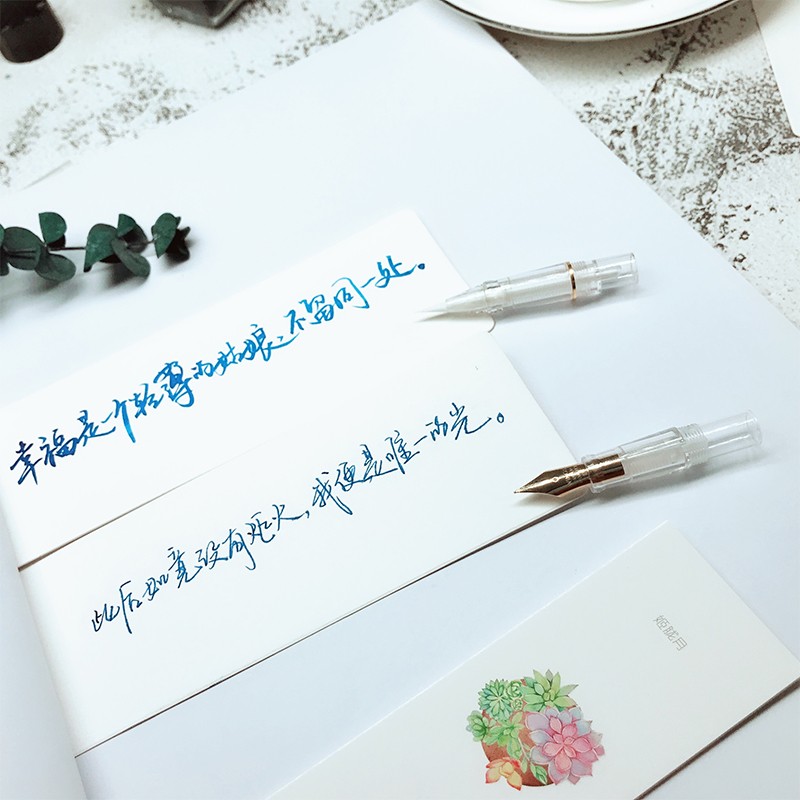 幸福是一个轻薄的姑娘，不留同一处。
此后如竟没有炬火，我便是唯一的光。
姬胧月